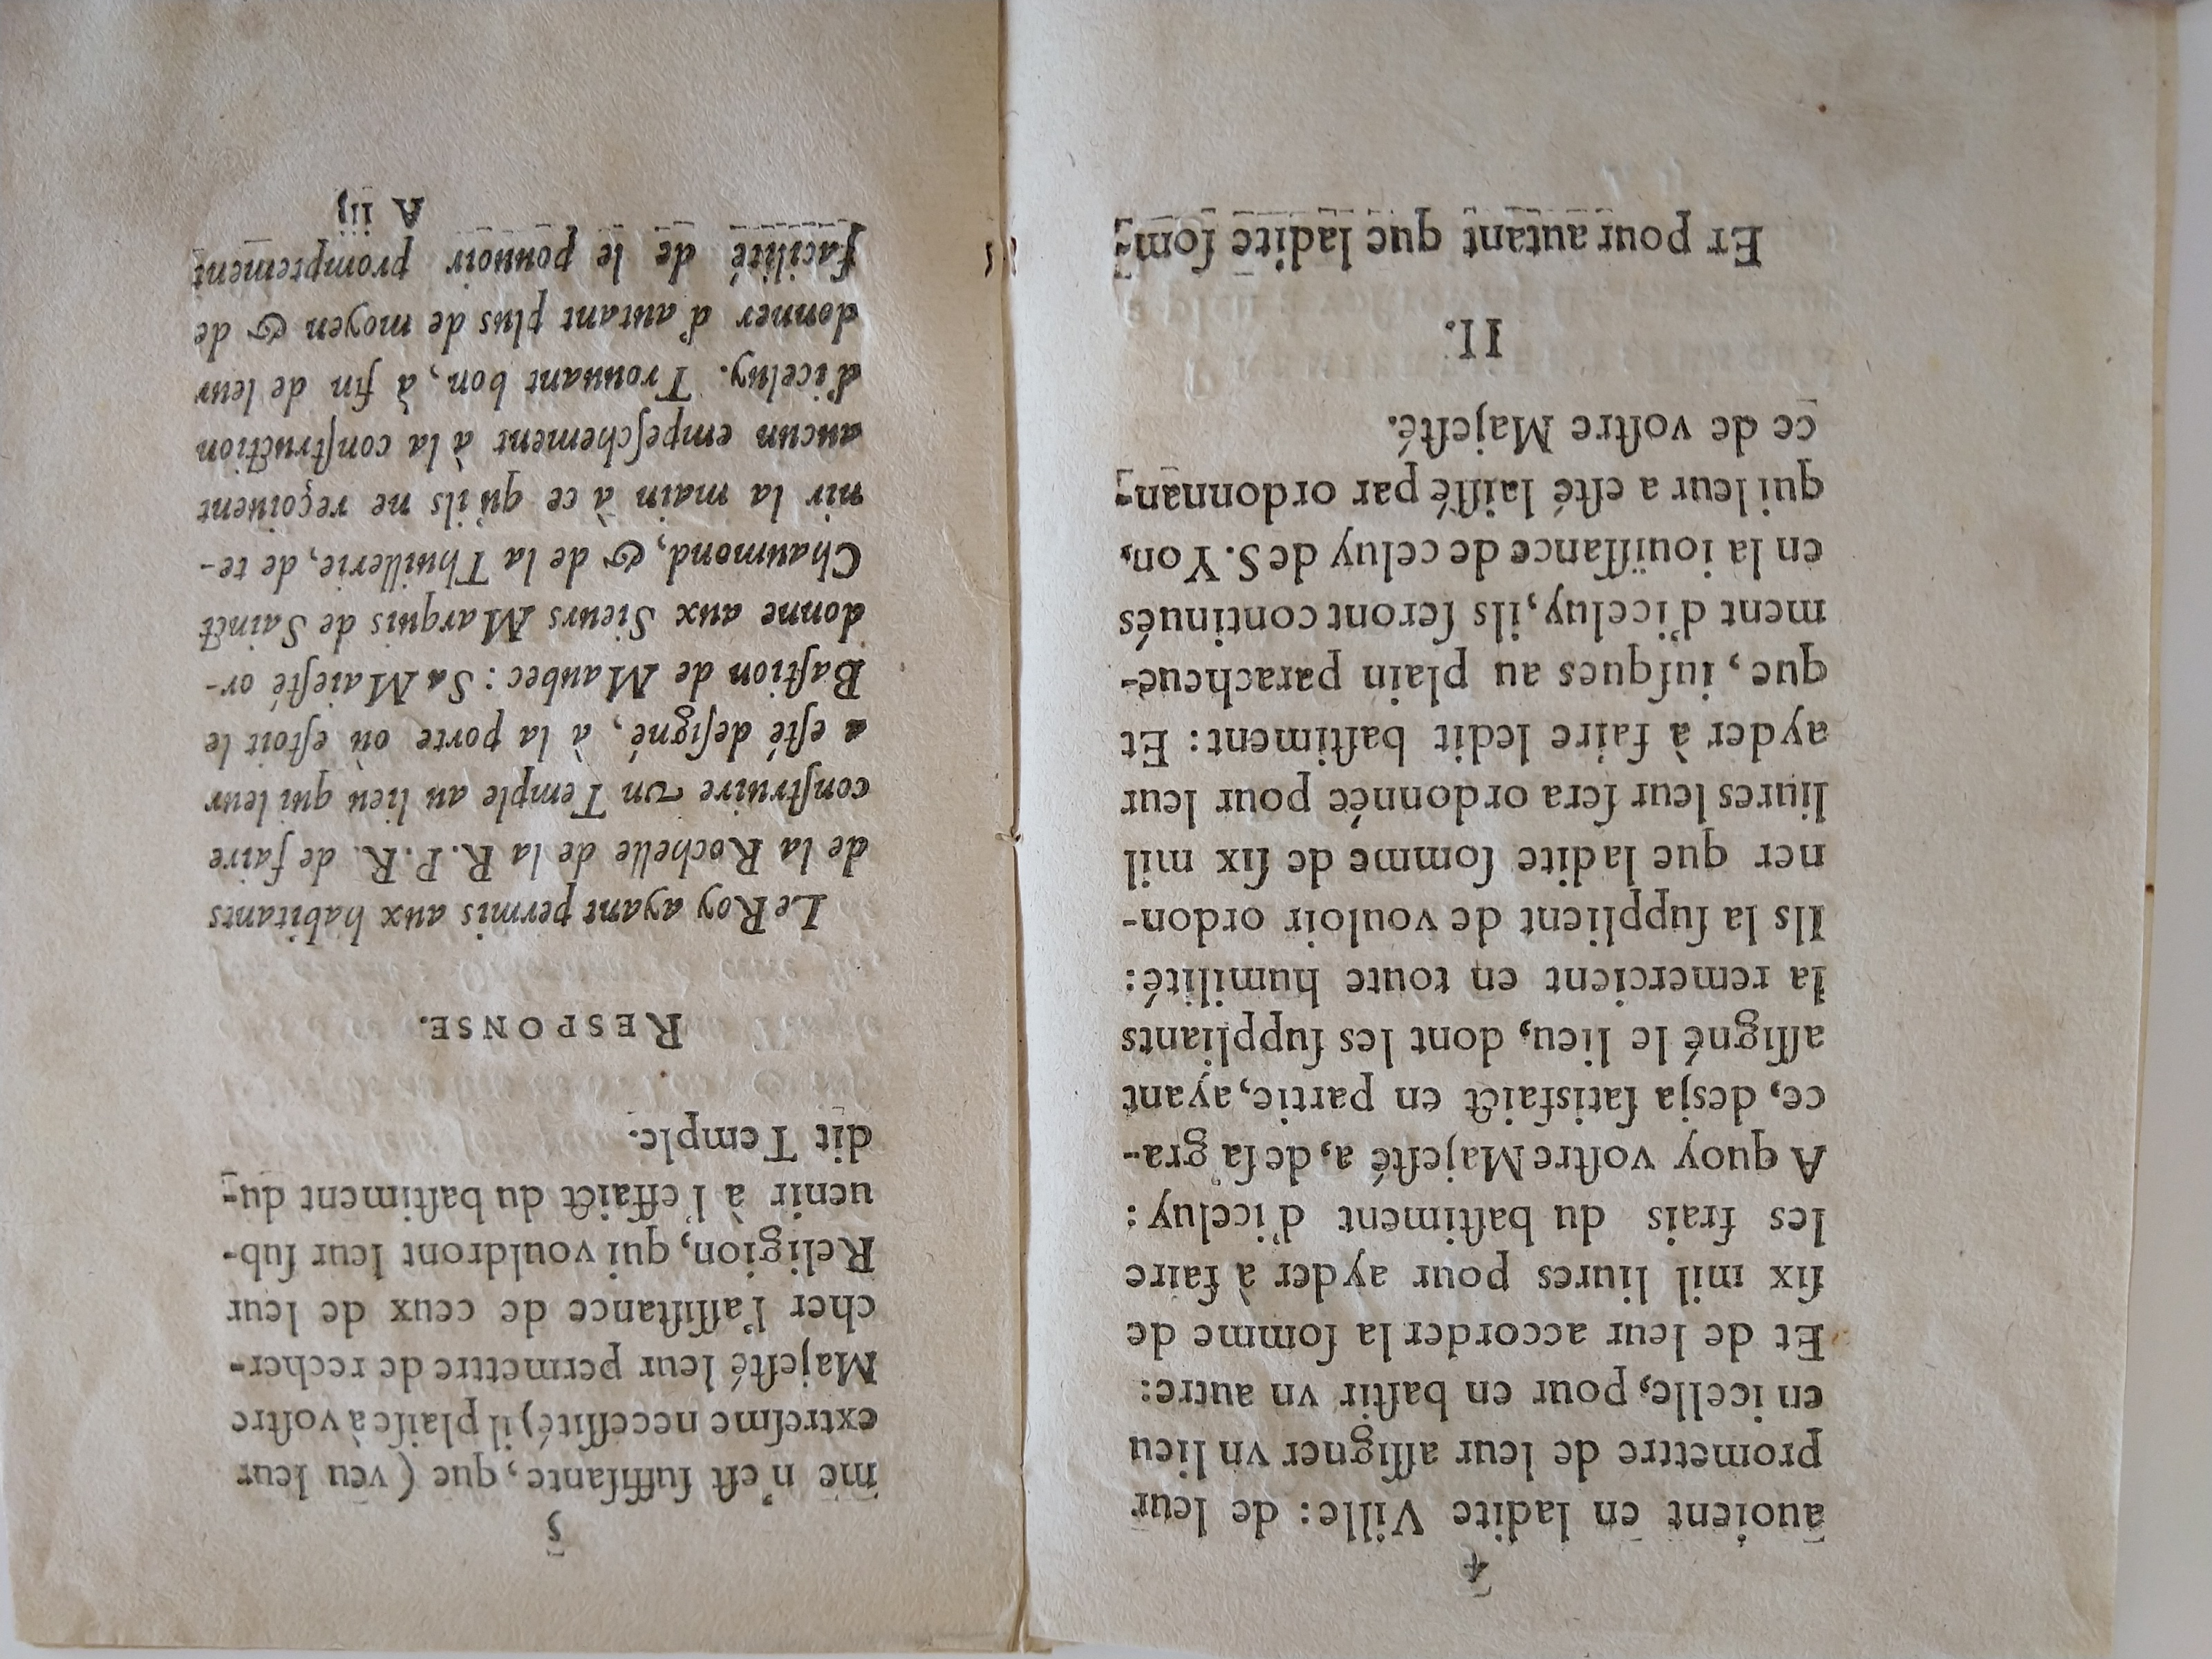 4
auoient en ladite Ville: de leur
promettre de leur aſſigner vn lieu
en icelle, pour en baſtir vn autre:
Et de leur accorder la ſomme de
ſix mil liures pour ayder à faire
les frais du baſtiment d'iceluy:
A quoy voſtre Majeſté a, de ſa gra-
ce, desja ſatisfaict en partie, ayant
aſſigné le lieu, dont les ſuppliants
la remercient en toute humilité:
Ils la ſupplient de vouloir ordon-
ner que ladite ſomme de ſix mil
liures leur ſera ordonnée pour leur
ayder à faire ledit baſtiment: Et
que, iuſques au plain paracheue-
ment d'iceluy, ils ſeront continués
en la iouïſſance de celuy de S. Yon,
qui leur a eſté laiſſé par ordonnan-
ce de voſtre Majeſté.
II.
Et pour autant que ladite ſom-
5
me n'eſt ſuffiſante, que (veu leur
extreſme neceſſité) il plaiſe à voſtre
Majeſté leur permettre de recher-
cher l'aſſiſtance de ceux de leur
Religion, qui vouldront leur ſub-
uenir à l'effaict du baſtiment du-
dit Temple.
RESPONSE.
Le Roy ayant permis aux habitants
de la Rochelle de la R. P. R. de faire
conſtruire vn Temple au lieu qui leur
a eſté deſigné, à la porte où eſtoit le
Baſtion de Maubec: Sa Maieſté or-
donne aux Sieurs Marquis de Sainct
Chaumond, & de la Thuillerie, de te-
nir la main à ce qu'ils ne reçoiuent
aucun empeſchement à la conſtruction
d'iceluy. Trouuant bon, à fin de leur
donner d'autant plus de moyen & de
facilité de le pouuoir promptement
A iij